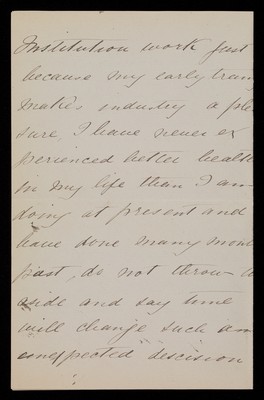 Institution work just
because my early train
makes industry a ple
sure, I have never ex
perienced better health
in my life than I am
doing at present and
have done many mon
past, do not throw
aside and say time
will change such an
unexpected descision